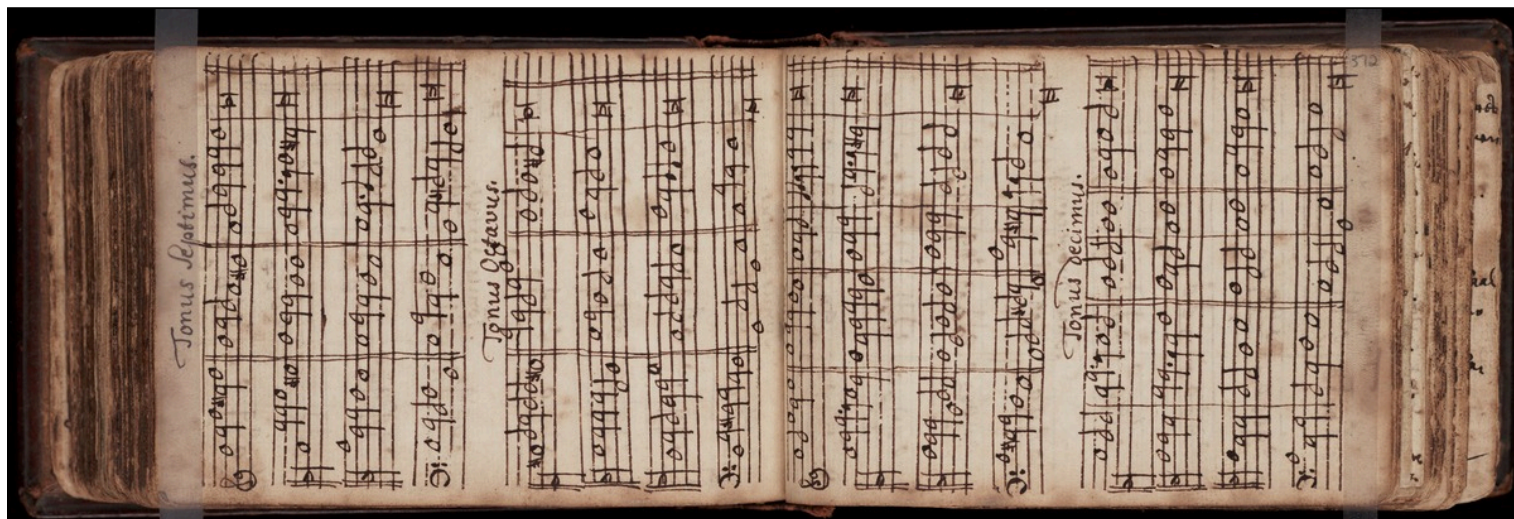 Tonus Septimus.
Tonus Octavus.
Tonus Decimus.
512